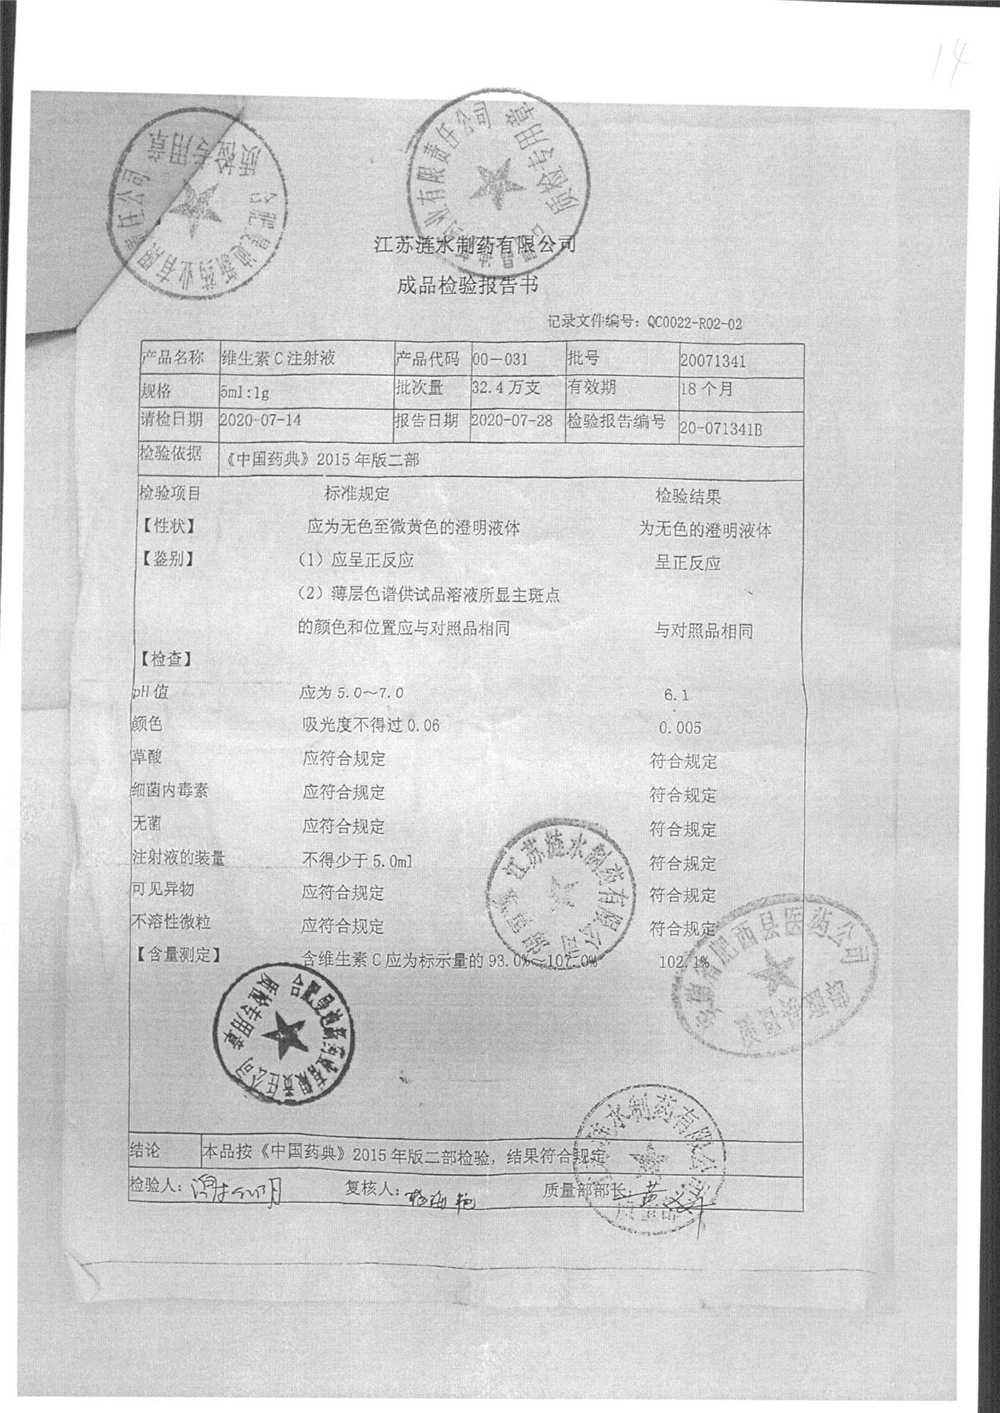 14
质检专用章
合肥曼迪新药业有限责任公司
质检专用章
江苏涟水制药有限公司
成品检验报告书
记录文件编号：QC0022-R02-02
产品名称 维生素C注射液 产品代码 00-031 批号 20071341
规格 5ml:1g 批次量 32.4万支 有效期 18个月
请检日期 2020-07-14 报告日期 2020-07-28 检验报告编号 20-071341B
检验依据 《中国药典》2015年版二部
检验项目 标准规定 检验结果
【性状】 应为无色至微黄色的澄明液体 为无色的澄明液体
【鉴别】 （1）应呈正反应 呈正反应
（2）薄层色谱供试品溶液所显主斑点
的颜色和位置应与对照品相同 与对照品相同
【检查】
pH值 应为5.0～7.0 6.1
颜色 吸光度不得过0.06 0.005
草酸 应符合规定 符合规定
细菌内毒素 应符合规定 符合规定
无菌 应符合规定 符合规定
注射液的装量 不得少于5.0ml 符合规定
可见异物 应符合规定 符合规定
不溶性微粒 应符合规定 符合规定
【含量测定】 含维生素C应为标示量的93.0%～107.0% 102.1%
江苏涟水制药有限公司
安徽省肥西县医药公司
质检专用章
结论 本品按《中国药典》2015年版二部检验，结果符合规定
检验人： 复核人： 质量部部长：